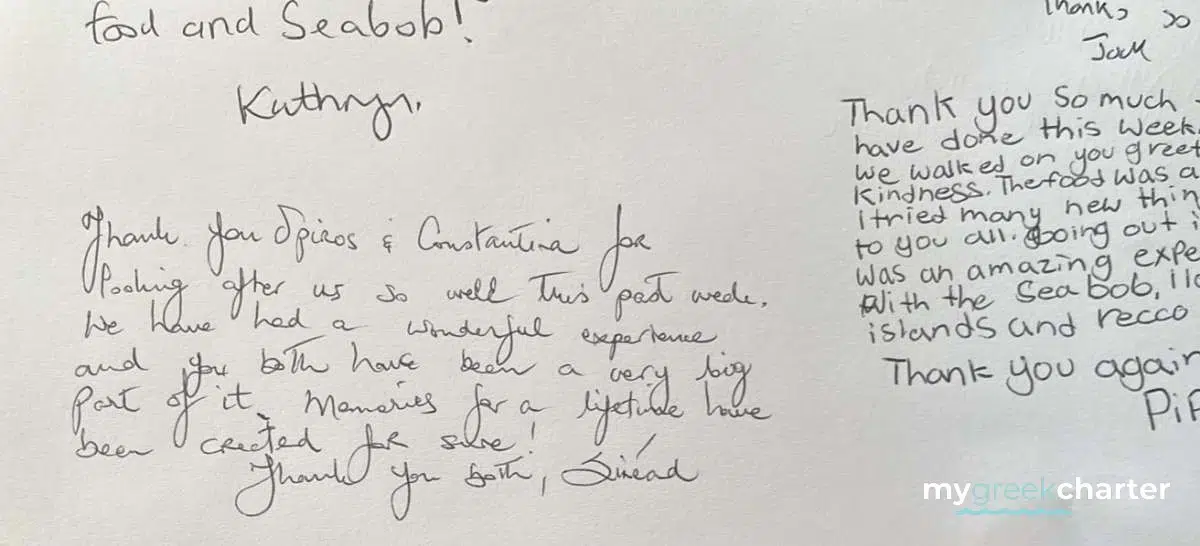 food and Seabob!
Kathryn.
Thank you Spiros & Constantina for
looking after us so well this past week.
We have had a wonderful experience
and you both have been a very big
part of it. Memories for a lifetime have
been created for sure!
Thank you both, Sinéad
Thanks so
Jack
Thank you so much
have done this week.
we walked on you greet
kindness. The food was a
I tried many new thin
to you all. Going out i
was an amazing expe
With the Sea bob, I lo
islands and recco
Thank you again
Pip
mygreekcharter